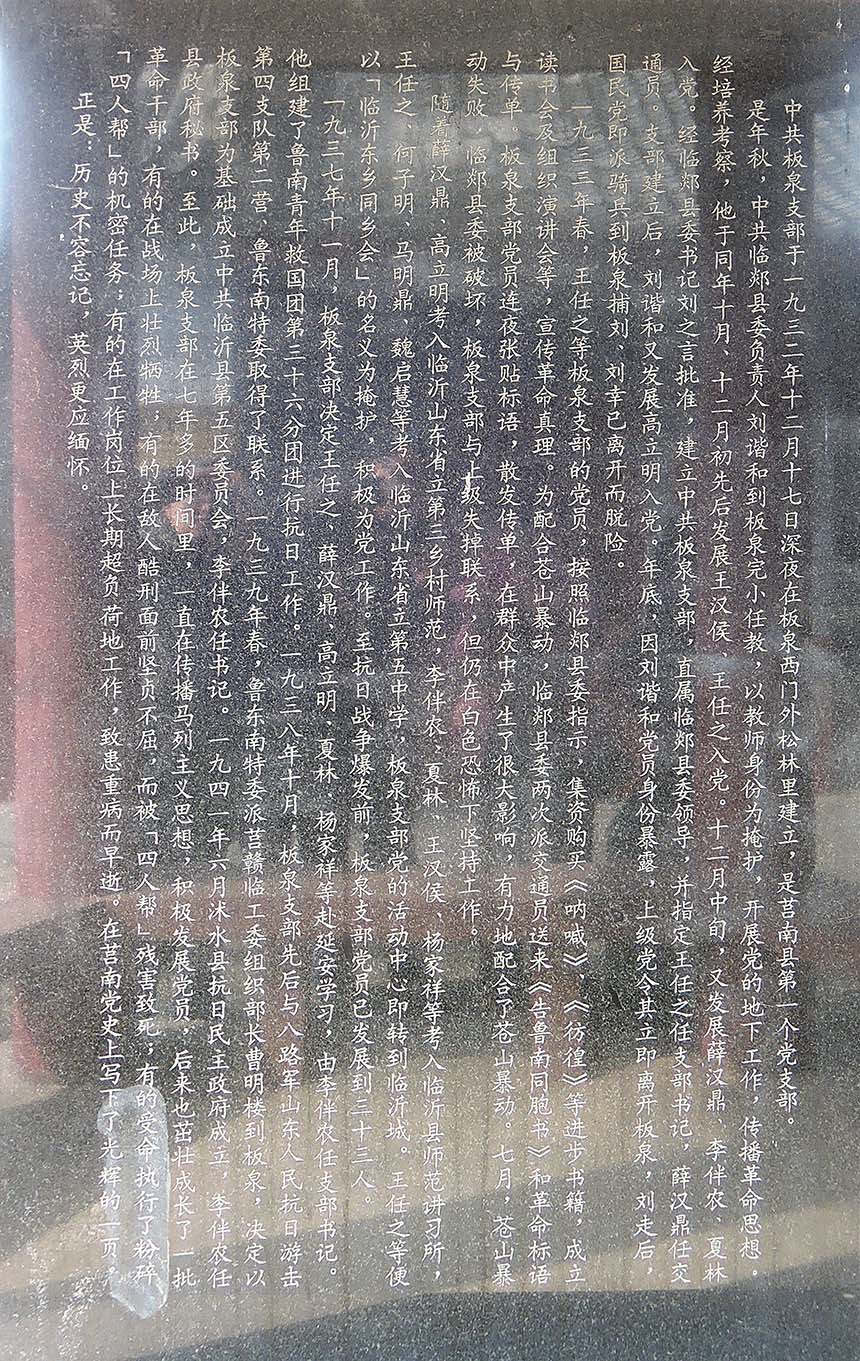 中共板泉支部于一九三二年十二月十七日深夜在板泉西门外松林里建立，是莒南县第一个党支部。
是年秋，中共临郯县委负责人刘谐和到板泉完小任教，以教师身份为掩护，开展党的地下工作，传播革命思想。
经培养考察，他于同年十月、十二月初先后发展王汉侯、王任之入党。十二月中旬，又发展薛汉鼎、李伴农、夏林
入党。经临郯县委书记刘之言批准，建立中共板泉支部，直属临郯县委领导，并指定王任之任支部书记，薛汉鼎任交
通员。支部建立后，刘谐和又发展高立明入党。年底，因刘谐和党员身份暴露，上级党令其立即离开板泉，刘走后，
国民党即派骑兵到板泉捕刘、刘幸已离开而脱险。
一九三三年春，王任之等板泉支部的党员，按照临郯县委指示，集资购买《呐喊》、《彷徨》等进步书籍，成立
读书会及组织演讲会等，宣传革命真理。为配合苍山暴动，临郯县委两次派交通员送来《告鲁南同胞书》和革命标语
与传单。板泉支部党员连夜张贴标语，散发传单，在群众中产生了很大影响，有力地配合了苍山暴动。七月，苍山暴
动失败，临郯县委被破坏，板泉支部与上级失掉联系，但仍在白色恐怖下坚持工作。
随着薛汉鼎、高立明考入临沂山东省立第三乡村师范，李伴农、夏林、王汉侯、杨家祥等考入临沂县师范讲习所，
王任之、何子明、马明鼎、魏启慧等考入临沂山东省立第五中学，板泉支部党的活动中心即转到临沂城。王任之等便
以「临沂东乡同乡会」的名义为掩护，积极为党工作。至抗日战争爆发前，板泉支部党员已发展到三十三人。
一九三七年十一月，板泉支部决定王任之、薛汉鼎、高立明、夏林、杨家祥等赴延安学习，由李伴农任支部书记。
他组建了鲁南青年救国团第三十六分团进行抗日工作。一九三八年十月，板泉支部先后与八路军山东人民抗日游击
第四支队第二营、鲁东南特委取得了联系。一九三九年春，鲁东南特委派莒赣临工委组织部长曹明楼到板泉，决定以
板泉支部为基础成立中共临沂县第五区委员会，李伴农任书记。一九四一年六月沭水县抗日民主政府成立，李伴农任
县政府秘书。至此，板泉支部在七年多的时间里，一直在传播马列主义思想，积极发展党员；后来也茁壮成长了一批
革命干部，有的在战场上壮烈牺牲；有的在敌人酷刑面前坚贞不屈，而被「四人帮」残害致死；有的受命执行了粉碎
「四人帮」的机密任务；有的在工作岗位上长期超负荷地工作，致患重病而早逝。在莒南党史上写下了光辉的一页。
正是：历史不容忘记，英烈更应缅怀。